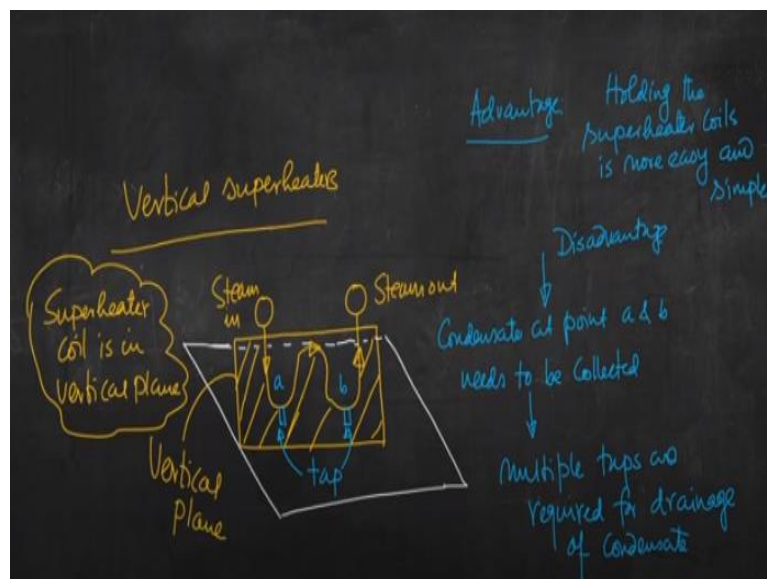 Vertical superheaters
Superheater
coil is in
vertical plane
Steam
in
Steam out
a
b
tap
Vertical
plane
Advantage
Holding the
superheater coils
is more easy and
simple
Disadvantage
Condensate at point a & b
needs to be collected
Multiple taps are
required for drainage
of condensate